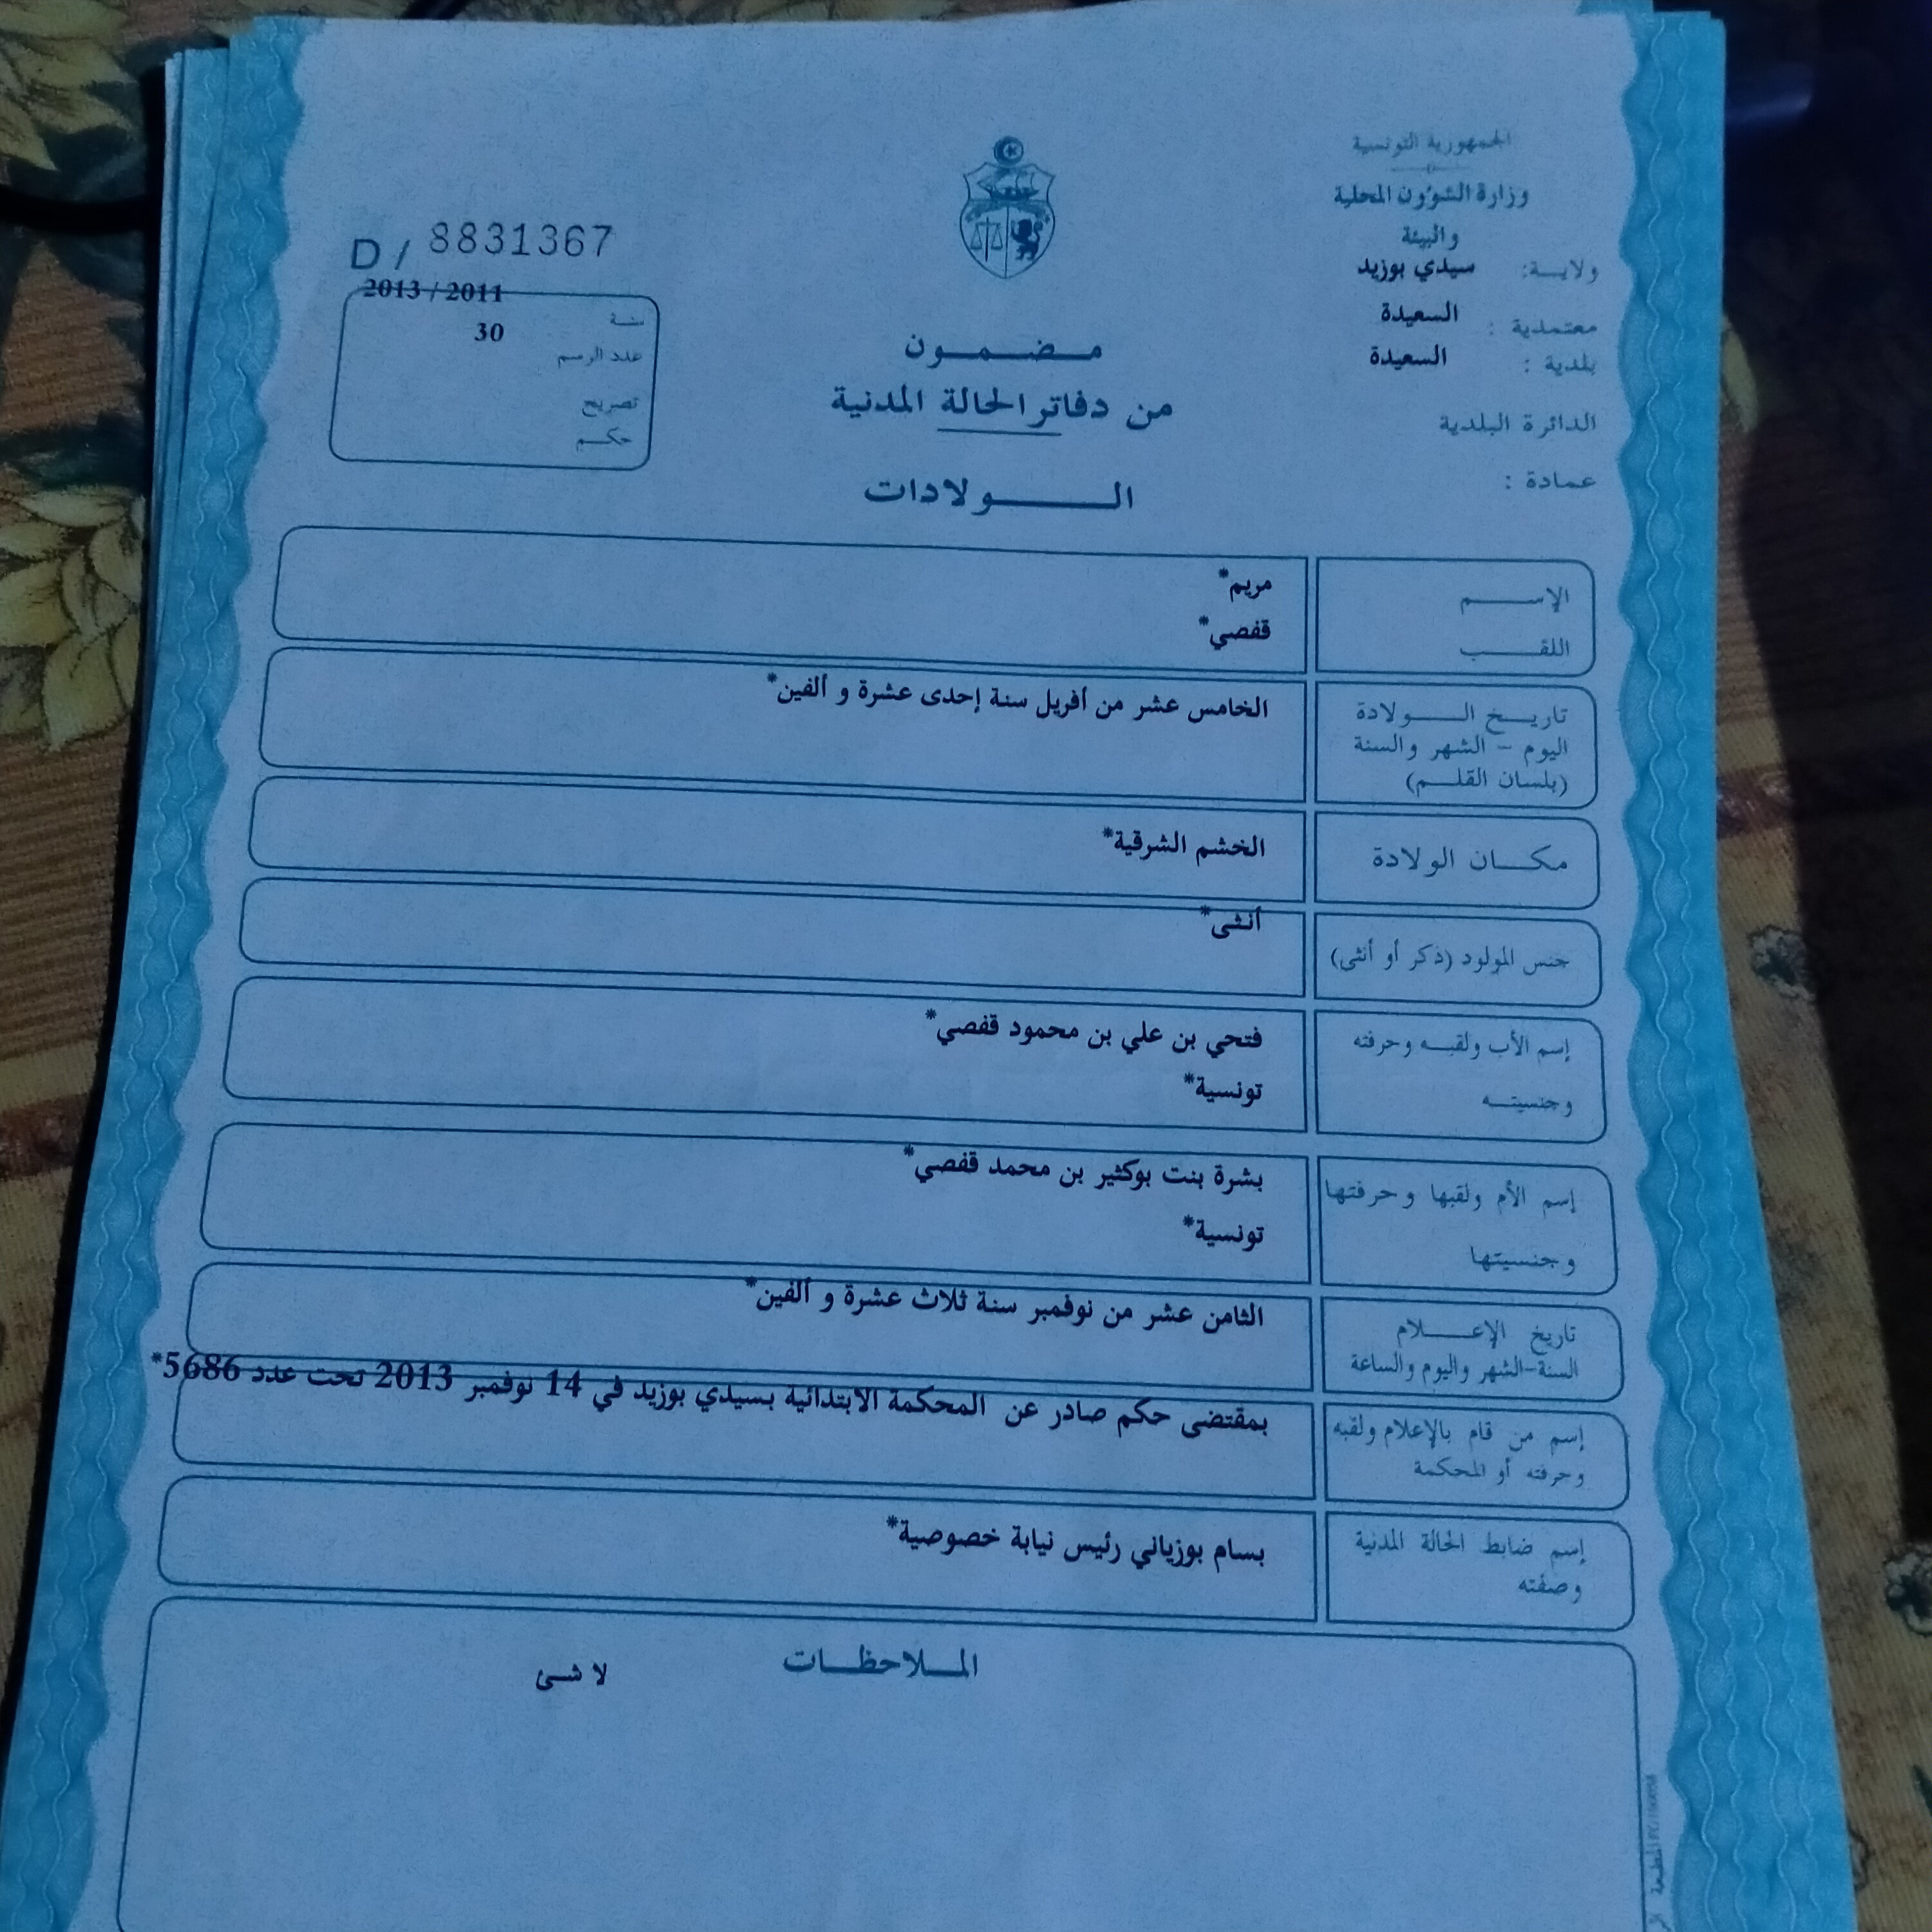 الجمهورية التونسية
وزارة الشؤون المحلية
والبيئة
ولايـــة: سيدي بوزيد
معتمدية : السعيدة
بلدية : السعيدة
الدائرة البلدية
عمادة :
D / 8831367
2013 / 2011
سنـة
30
عدد الرسم
تصريح
حكـم
مـضـمـون
من دفاتر الحالة المدنية
الـولادات
الإســـم مريم*
اللقـــب قفصي*
تاريـخ الـــولادة الخامس عشر من أفريل سنة إحدى عشرة و ألفين*
اليوم - الشهر والسنة
(بلسان القلـم)
مكـان الولادة الخشم الشرقية*
جنس المولود (ذكر أو أنثى) أنثى*
إسم الأب ولقبـه وحرفته فتحي بن علي بن محمود قفصي*
وجنسيتـه تونسية*
إسم الأم ولقبها وحرفتها بشرة بنت بوكثير بن محمد قفصي*
وجنسيتها تونسية*
تاريخ الإعـــلام الثامن عشر من نوفمبر سنة ثلاث عشرة و ألفين*
السنة-الشهر واليوم والساعة
إسم من قام بالإعلام ولقبه بمقتضى حكم صادر عن المحكمة الابتدائية بسيدي بوزيد في 14 نوفمبر 2013 تحت عدد 5686*
وحرفته أو المحكمة
إسم ضابط الحالة المدنية بسام بوزياني رئيس نيابة خصوصية*
وصفته
المـلاحظـات
لا شئ